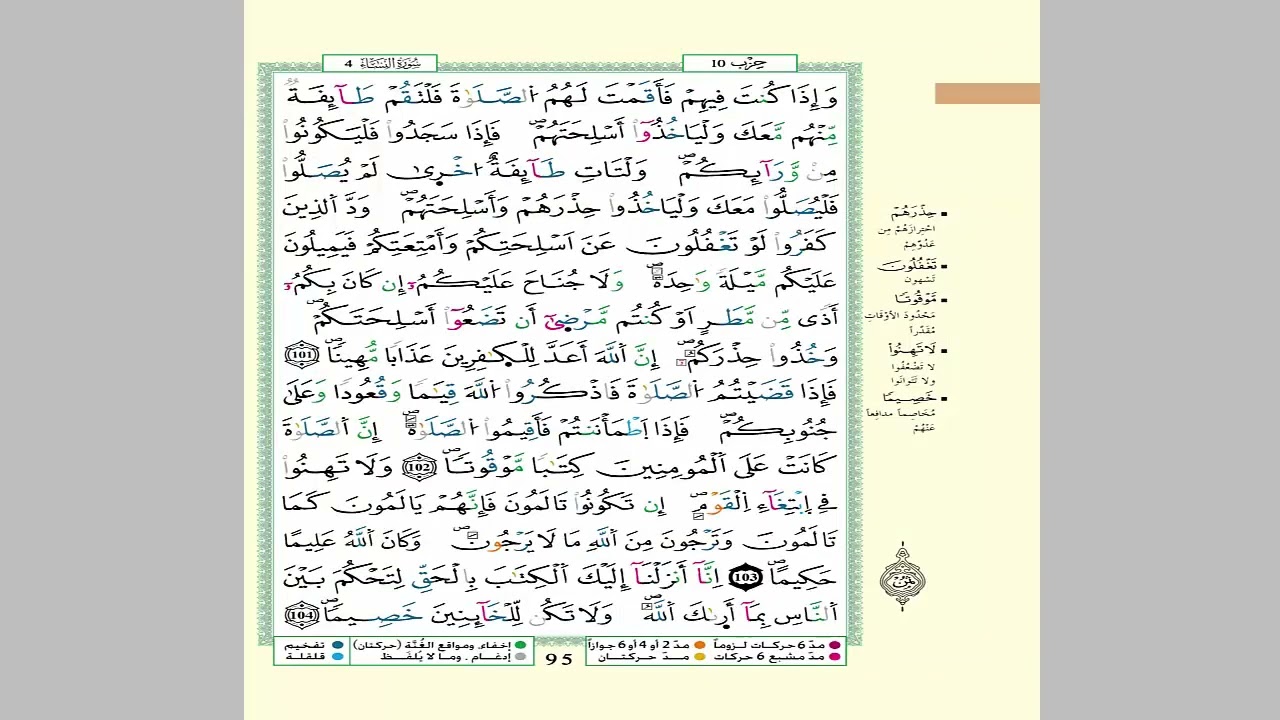 سُورَةُ النِّسَاءِ 4
حِزْب 10
وَإِذَا كُنتَ فِيهِمْ فَأَقَمْتَ لَهُمُ اُ۬لصَّلَوٰةَ فَلْتَقُمْ طَآئِفَةٞ
مِّنْهُم مَّعَكَ وَلْيَاخُذُوٓاْ أَسْلِحَتَهُمْۖ فَإِذَا سَجَدُواْ فَلْيَكُونُواْ
مِنْ وَّرَآئِكُمْۖ وَلْتَاتِ طَآئِفَةٌ ا۟خْر۪يٰ لَمْ يُصَلُّواْ
فَلْيُصَلُّواْ مَعَكَ وَلْيَاخُذُواْ حِذْرَهُمْ وَأَسْلِحَتَهُمْۖ وَدَّ اَ۬لذِينَ
كَفَرُواْ لَوْ تَغْفُلُونَ عَنَ اَسْلِحَتِكُمْ وَأَمْتِعَتِكُمْ فَيَمِيلُونَ
عَلَيْكُم مَّيْلَةٗ وَٰحِدَةٗۖ وَلَا جُنَاحَ عَلَيْكُمُۥٓ إِن كَانَ بِكُمُۥٓ
أَذٗى مِّن مَّطَرٍ اَوْ كُنتُم مَّرْض۪يٰٓ أَن تَضَعُوٓاْ أَسْلِحَتَكُمْۖ
وَخُذُواْ حِذْرَكُمُۥٓۖ إِنَّ اَ۬للَّهَ أَعَدَّ لِلْكٰ۪فِرِينَ عَذَابٗا مُّهِينٗاۖ 101
فَإِذَا قَضَيْتُمُ اُ۬لصَّلَوٰةَ فَاذْكُرُواْ اُ۬للَّهَ قِيَٰمٗا وَقُعُودٗا وَعَلَىٰ
جُنُوبِكُمْۖ فَإِذَا اَ۪طْمَأْنَنتُمْ فَأَقِيمُواْ اُ۬لصَّلَوٰةَۖ إِنَّ اَ۬لصَّلَوٰةَ
كَانَتْ عَلَى اَ۬لْمُومِنِينَ كِتَٰبٗا مَّوْقُوتٗاۖ 102 وَلَا تَهِنُواْ
فِے اِ۪بْتِغَآءِ اِ۬لْقَوْمِۖ إِن تَكُونُواْ تَالَمُونَ فَإِنَّهُمْ يَالَمُونَ كَمَا
تَالَمُونَ وَتَرْجُونَ مِنَ اَ۬للَّهِ مَا لَا يَرْجُونَۖ وَكَانَ اَ۬للَّهُ عَلِيمًا
حَكِيمًاۖ 103 اِنَّآ أَنزَلْنَآ إِلَيْكَ اَ۬لْكِتَٰبَ بِالْحَقِّ لِتَحْكُمَ بَيْنَ
اَ۬لنَّاسِ بِمَآ أَر۪يٰكَ اَ۬للَّهُۖ وَلَا تَكُن لِّلْخَآئِنِينَ خَصِيمٗاۖ 104
حِذْرَهُمْ
احْتِرَازَهُمْ مِن
عَدُوِّهِمْ
تَغْفُلُونَ
تَسْهون
مَوْقُوتًا
مَحْدُودَ الأوْقَاتِ
مُقَدَّراً
لَا تَهِنُواْ
لا تَضْعُفُوا
ولا تَتَوانَوا
خَصِيمًا
مُخَاصِماً مدافِعاً
عَنْهُمْ
ثُمُن
مدّ 6 حركات لزوماً
مدّ 2 أو 4 أو 6 جوازاً
مدّ مشبع 6 حركات
مدّ حركتان
95
إخفاء، ومواقع الغُنَّة (حركتان)
تفخيم
إدغام ، وما لا يُلفَظ
قلقلة